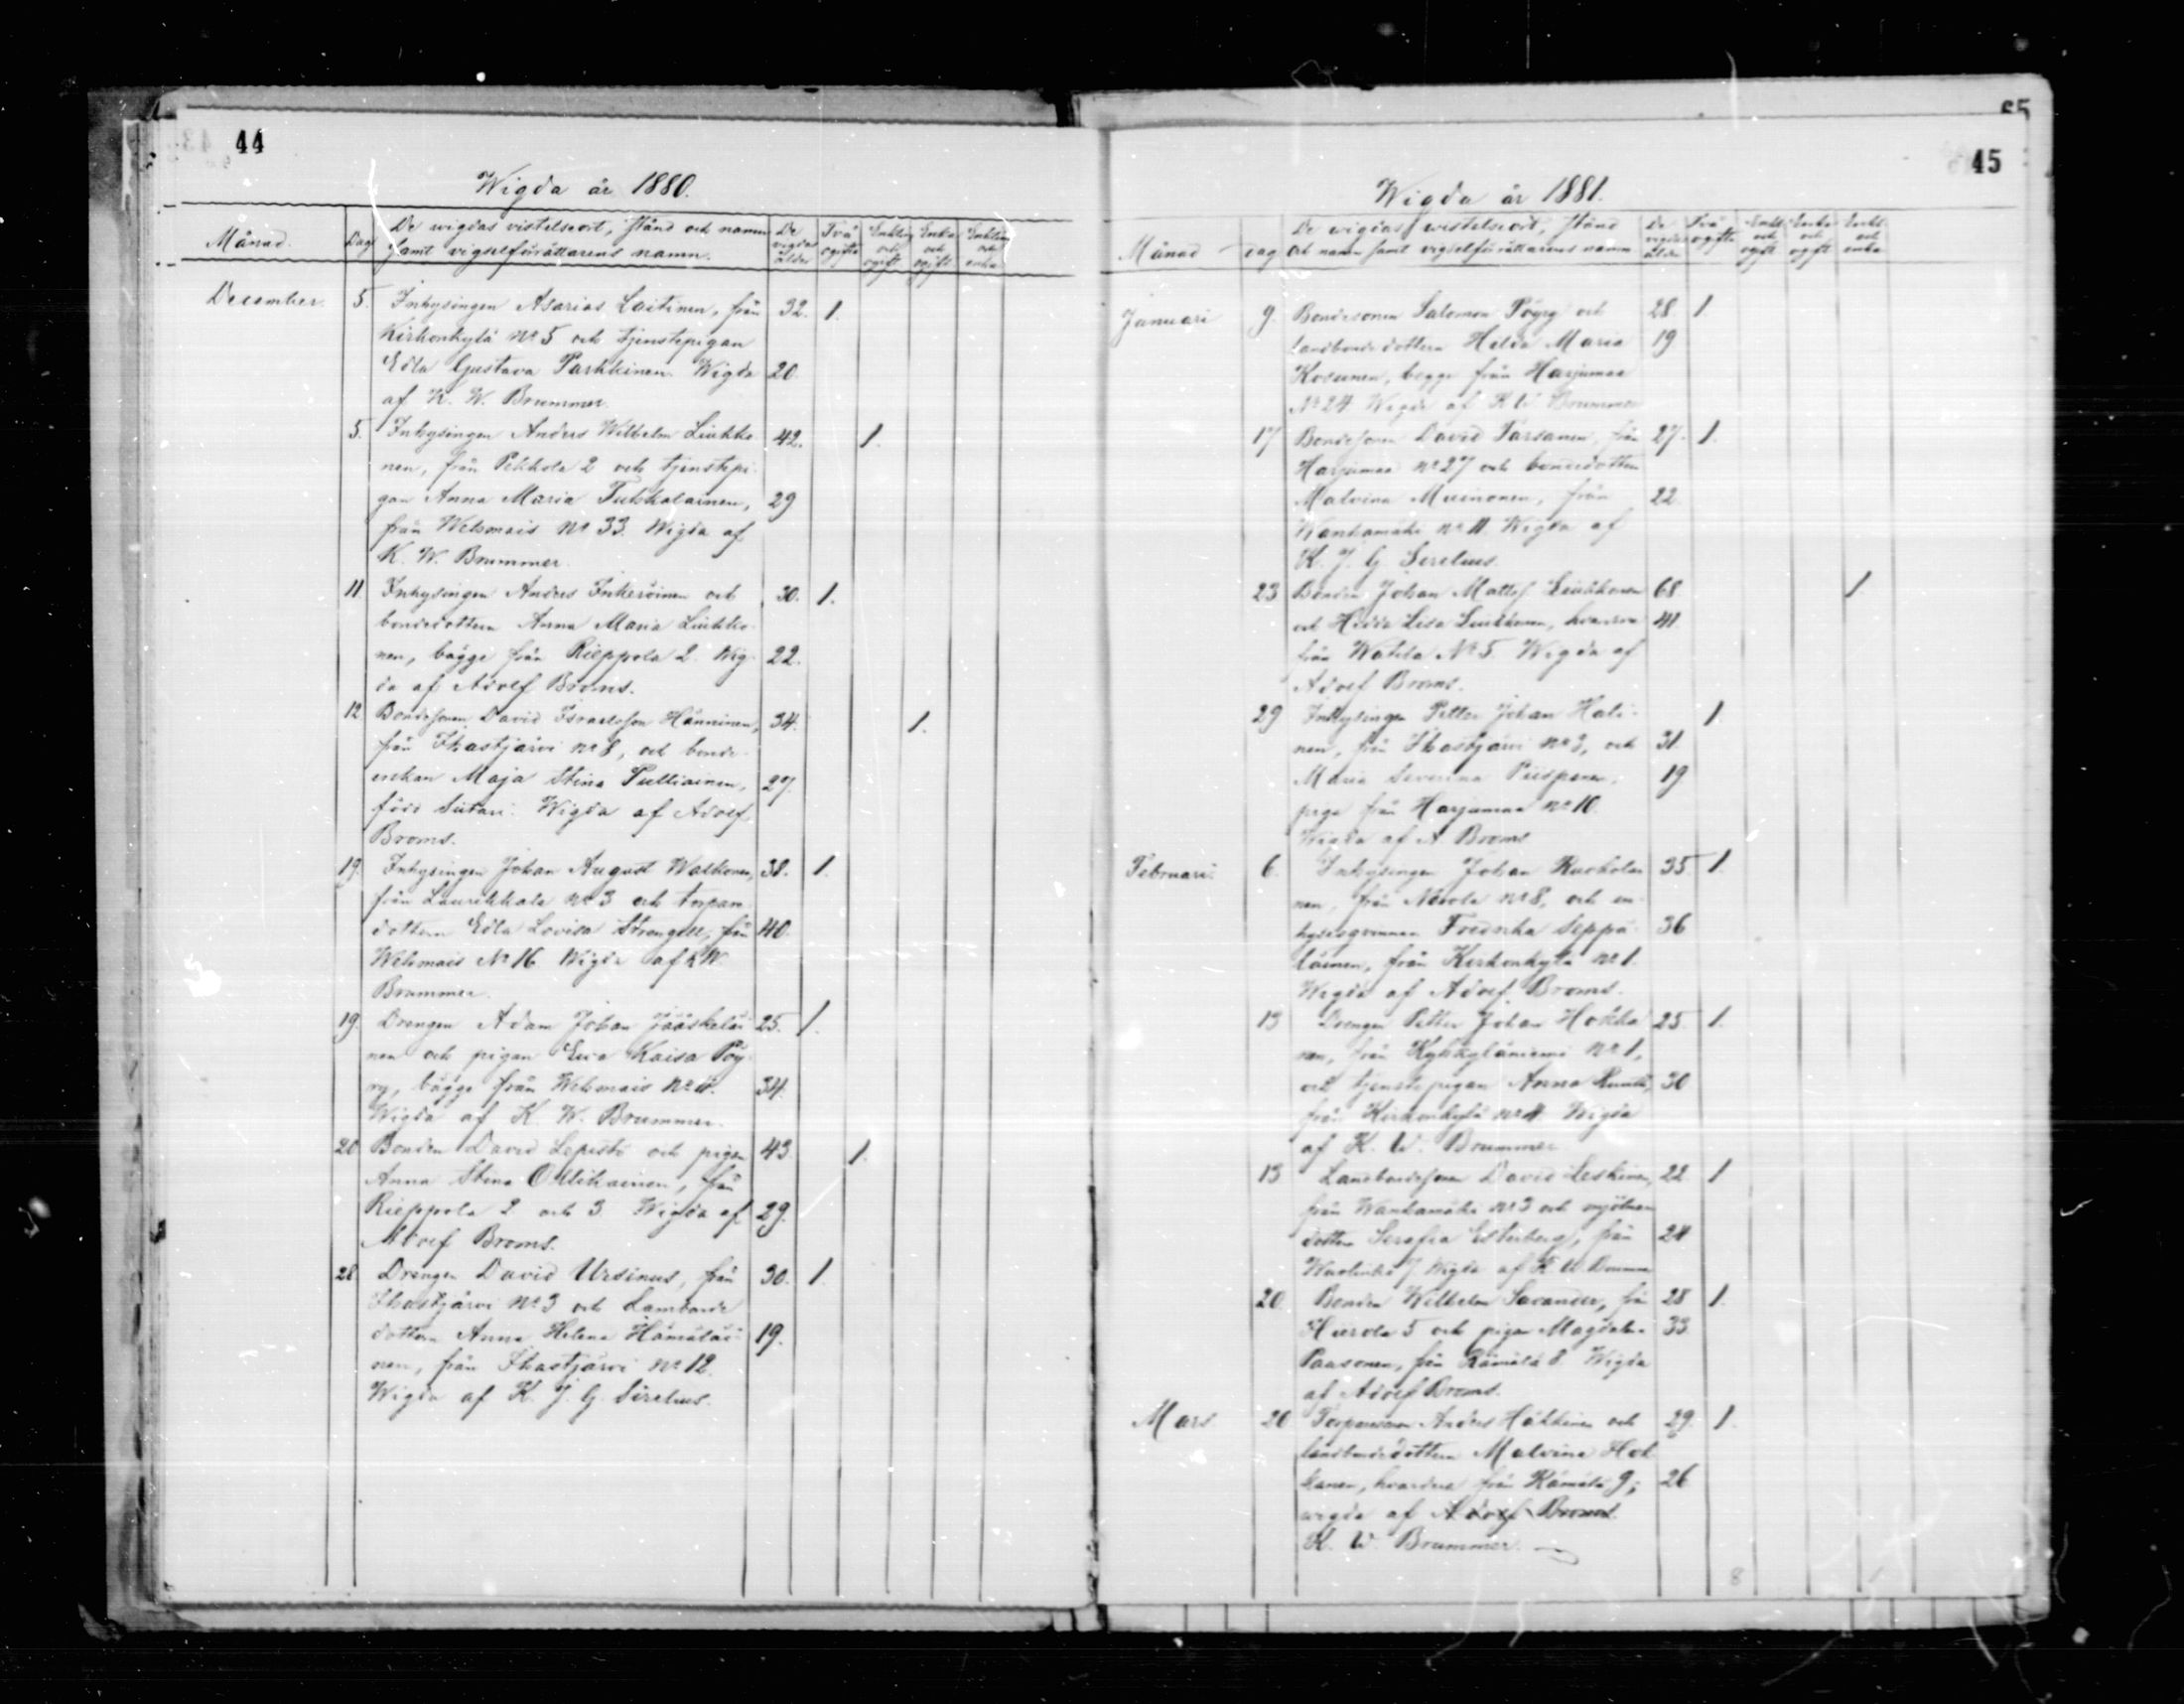 44
Wigda år 1880.
Månad. Dag De wigdas vistelseort, stånd och namn De Två Enkling Enka Enkling
samt vigselförättarens namn. vigdas ogifta och och och
ålder ogift ogift enka
December. 5. Inhysingen Asarias Laitinen, från 32. 1.
Kirkonkylä No 5 och tjenstepigan
Edla Gustava Parkkinen. Wigda 20
af K. W. Brummer.
5. Inhysingen Anders Wilhelm Liukko 42. 1.
nen, från Pekkola 2 och tjenstepi-
gan Anna Maria Tukkalainen, 29
från Wehmais No 33. Wigda af
K. W. Brummer.
11 Inhysingen Anders Inkeröinen och 30. 1.
bondedottern Anna Maria Liukko-
nen, bägge från Rieppola 2. Wig- 22.
da af Adolf Broms.
12 Bondesonen David Israelsson Hänninen, 34. 1.
från Ihastjärvi No 8, och bonde-
enkan Maja Stina Pulliainen, 27.
född Sutari. Wigda af Adolf
Broms.
19. Inhysingen Johan August Walkonen, 38. 1.
från Laurikkala No 3 och torpare
dottern Edla Lovisa Strengell, från 40.
Wehmais No 16 Wigda af K W.
Brummer.
19. Drengen Adam Johan Jääskeläi- 25. 1.
nen och pigan Eva Kaisa Pöy-
ry, bägge från Wehmais No 11. 34.
Wigda af K. W. Brummer.
20 Bonden David Lepistö och pigan 43. 1.
Anna Stina Ollikainen, från
Rieppola 2 och 3 Wigda af 29.
Adolf Broms.
28 Drengen David Ursinus, från 30. 1.
Ihastjärvi No 3 och Lambonde
dottern Anna Helena Hämäläi- 19.
nen, från Ihastjärvi No 12.
Wigda af K. J. G. Sirelius.
65
45
Wigda år 1881.
Månad dag De wigdas wistelseort, stånd De Två Enkl Enka Enkl.
och namn samt vigselförättarens namn vigdas ogifta och och och
ålder ogift ogift enka
Januari 9. Bondesonen Salomon Pöyry och 28. 1
landbondedottern Hilda Maria 19
Kosunen, begge från Harjumaa
No 24. Wigda af K W Brummer
17 Bondesonen David Tarsanen, från 27. 1.
Harjumaa No 27 och bondedottern
Malvina Muinonen, från 22.
Wanhamäki No 11. Wigda af
K. J. G. Sirelius.
23 Bonden Johan Mattss Liukkonen 68 1
och Hedda Lisa Liukkonen, hvardera 41.
från Watila No 5. Wigda af
Adolf Broms.
29 Inhysingen Petter Johan Hali- 1.
nen, från Ihastjärvi No 3, och 31.
Maria Severina Piispanen, 19.
piga från Harjumaa No 10.
Wigda af A Broms
Februari 6. Inhysingen Johan Ruokolai 35 1.
nen, från No 8, och in-
hysesqvinnan Fredrika Seppä- 36
läinen, från Kirkonkylä No 1.
Wigda af Adolf Broms.
13 Drengen Petter Johan Hokka 25. 1.
nen, från Kyhkyläniemi No 1,
och tjenstepigan Anna 30
från Kirkonkylä No 4. Wigda
af K. W. Brummer
13 Landbondesonen David Leskinen, 22 1
från Wanhamäki No 3 och mjölnare
dottern Serafia Esterberg, från 24
7 Wigda af K W Brummer
20. Bonden Wilhelm Savander, från 28 1.
Hiirola 5 och pigan Magdalena 33
Paasonen, från Rämälä 8. Wigda
af Adolf Broms.
Mars 20 Torparesonen Anders Häkkinen och 29. 1.
landbondedottern Malvina Hok
kanen, hvardera från Rämälä 9; 26
wigda af Adolf Broms.
K. W. Brummer.
8 1